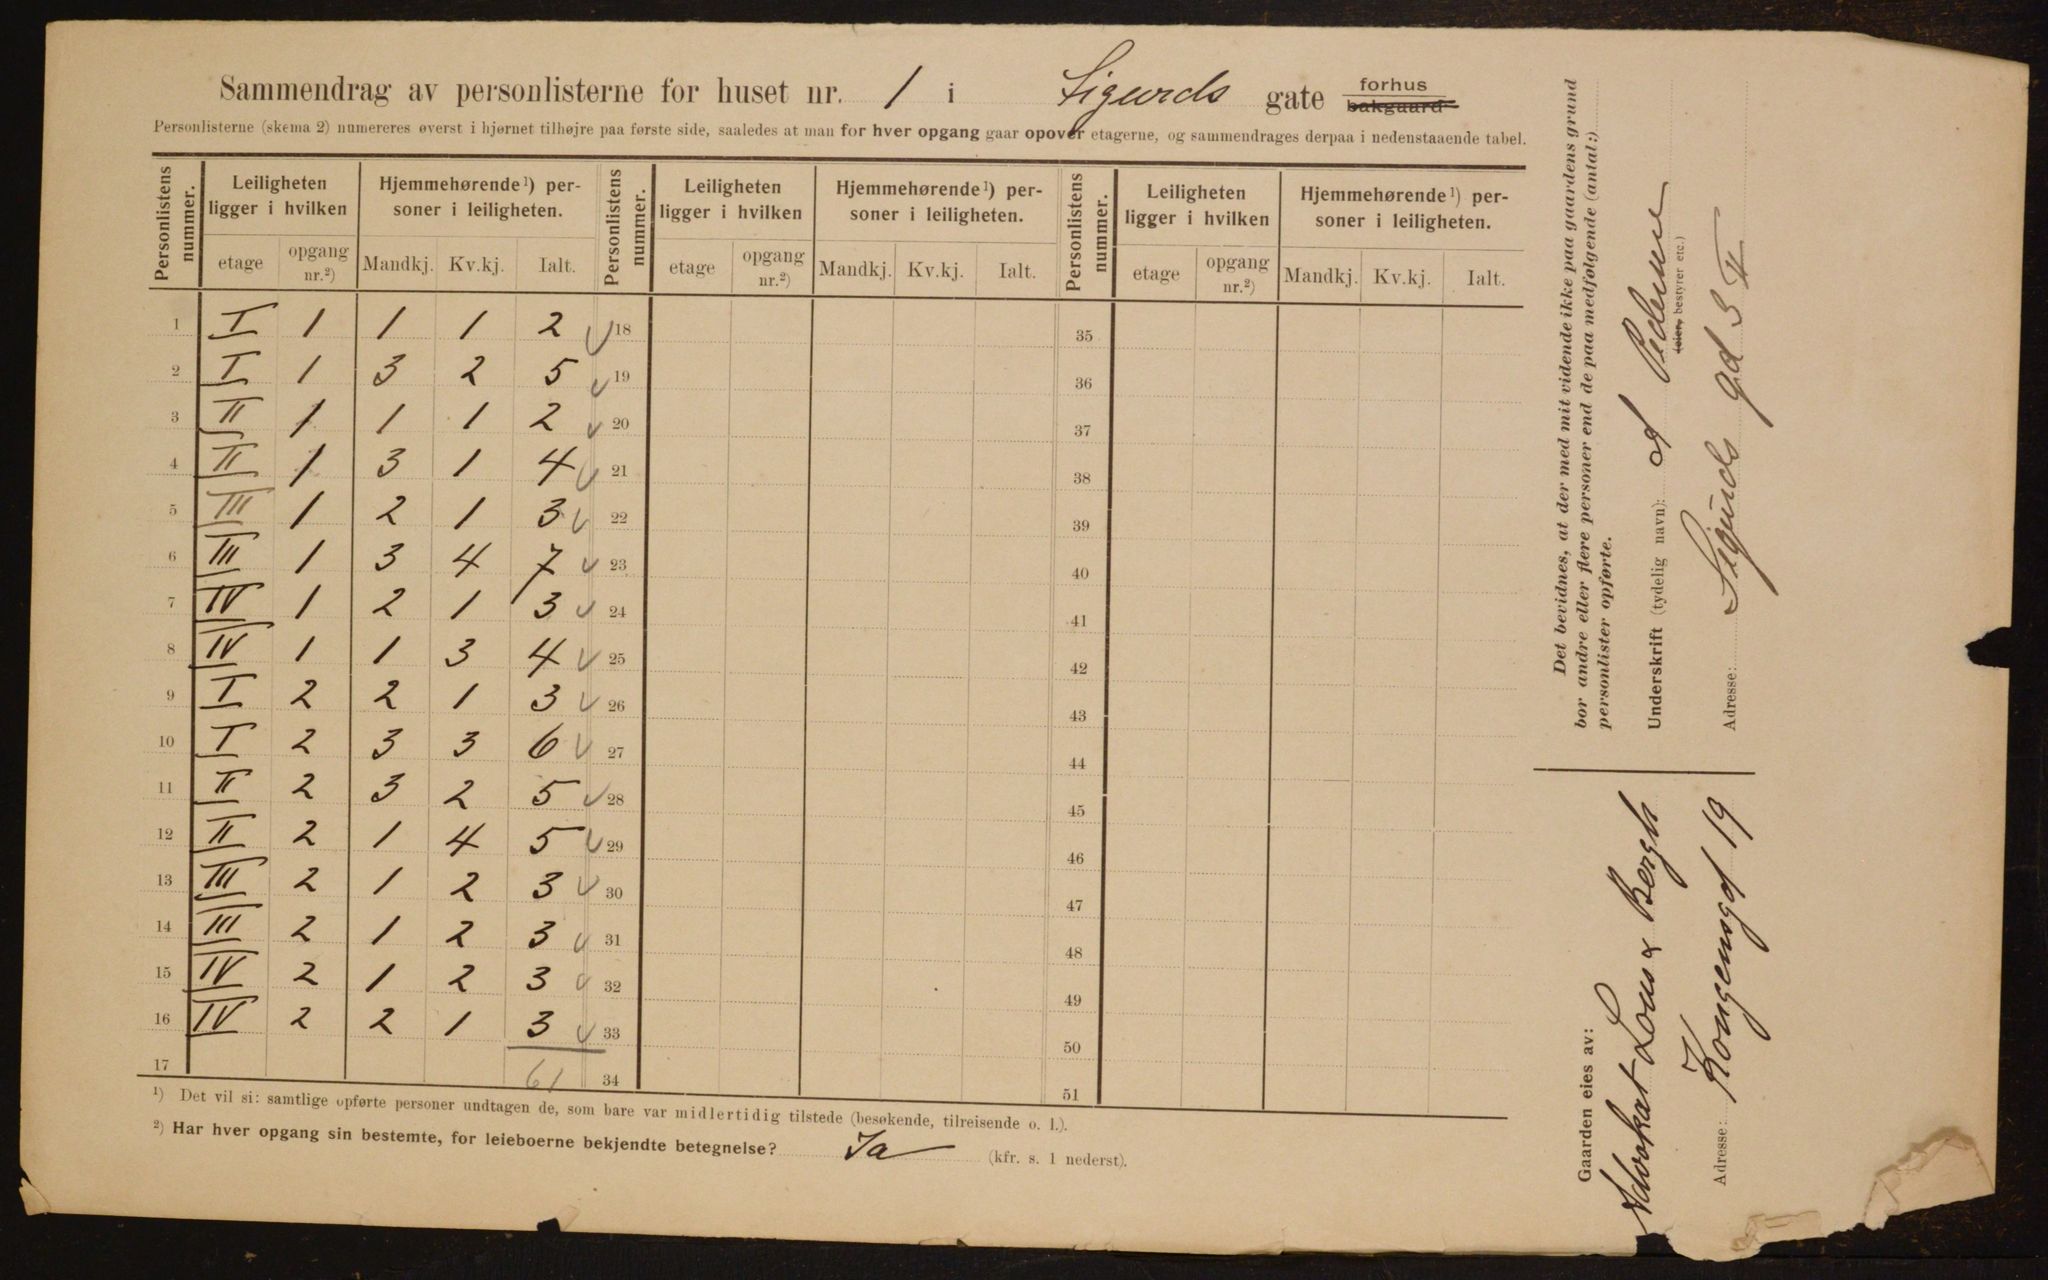 Sammendrag av personlisterne for huset nr. 1 i Sigurds gate forhus
bakgaard
Personlisterne (skema 2) numereres øverst i hjørnet tilhøjre paa første side, saaledes at man for hver opgang gaar opover etagerne, og sammendrages derpaa i nedenstaaende tabel.
Personlistens nummer. Leiligheten ligger i hvilken Hjemmehørende¹) personer i leiligheten. Personlistens nummer. Leiligheten ligger i hvilken Hjemmehørende¹) personer i leiligheten. Personlistens nummer. Leiligheten ligger i hvilken Hjemmehørende¹) personer i leiligheten.
etage opgang nr.²) Mandkj. Kv.kj. Ialt. etage opgang nr.²) Mandkj. Kv.kj. Ialt. etage opgang nr.²) Mandkj. Kv.kj. Ialt.
1 I 1 1 1 2 18 35
2 I 1 3 2 5 19 36
3 II 1 1 1 2 20 37
4 II 1 3 1 4 21 38
5 III 1 2 1 3 22 39
6 III 1 3 4 7 23 40
7 IV 1 2 1 3 24 41
8 IV 1 1 3 4 25 42
9 I 2 2 1 3 26 43
10 I 2 3 3 6 27 44
11 II 2 3 2 5 28 45
12 II 2 1 4 5 29 46
13 III 2 1 2 3 30 47
14 III 2 1 2 3 31 48
15 IV 2 1 2 3 32 49
16 IV 2 2 1 3 33 50
17 61 34 51
¹) Det vil si: samtlige opførte personer undtagen de, som bare var midlertidig tilstede (besøkende, tilreisende o. l.).
²) Har hver opgang sin bestemte, for leieboerne bekjendte betegnelse? Ja (kfr. s. 1 nederst).
Det bevidnes, at der med mit vidende ikke paa gaardens grund
bor andre eller flere personer end de paa medfølgende (antal:)
personlister opførte.
Underskrift (tydelig navn): A Pedersen
leier, bestyrer etc.)
Adresse: Sigurds gd 3
Gaarden eies av:
Advokat Lous & Bergh
Adresse: Kongensgd 19